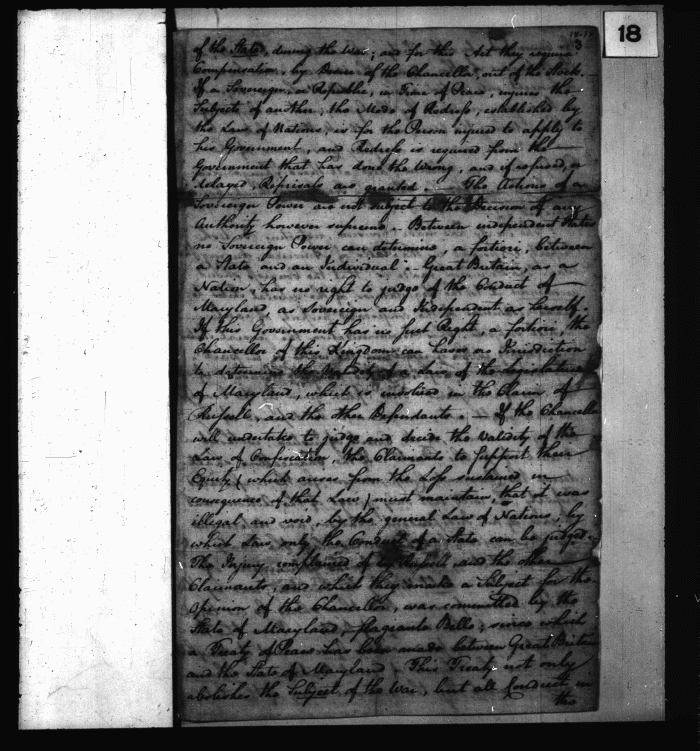 18
3
of the State, during the War; and for this Act they require
Compensation, by Decree of the Chancellor, out of the Stock. –
If a Sovereign, or Republic, in Time of Peace, injures the
Subjects of another, the Mode of Redress, established by
the Law of Nations, is for the Person injured to apply to
his Government, and Redress is required from the
Government that has done the Wrong, and if refused, or
delayed, Reprisals are granted. – The Actions of a
Sovereign Power are not subject to the Decision of any
Authority however supreme. – Between independent States
no Sovereign Power can determine, a fortiori, between
a State and an Individual. – Great Britain, as a
Nation, has no right to judge of the Conduct of
Maryland, as Sovereign and Independent as herself.
If this Government has no just Right, a fortiori, the
Chancellor of this Kingdom can have no Jurisdiction
to determine the Validity of a Law of the Legislature
of Maryland, which is involved in the Claim of
Russell, and the other Defendants. – If the Chancellor
will undertake to judge and decide the Validity of the
Law of Confiscation, the Claimants to support their
Equity (which arises from the Loss sustained in
consequence of that Law) must maintain, that it was
illegal and void, by the general Law of Nations, by
which Law only the Conduct of a State can be judged. –
The Injury complained of by Russell and the other
Claimants, and which they make a Subject for the
Opinion of the Chancellor, was committed by the
State of Maryland, flagrante Bello; since which
a Treaty of Peace has been made between Great Britain
and the State of Maryland. This Treaty not only
abolishes the Subject of the War, but all Conduct in
the